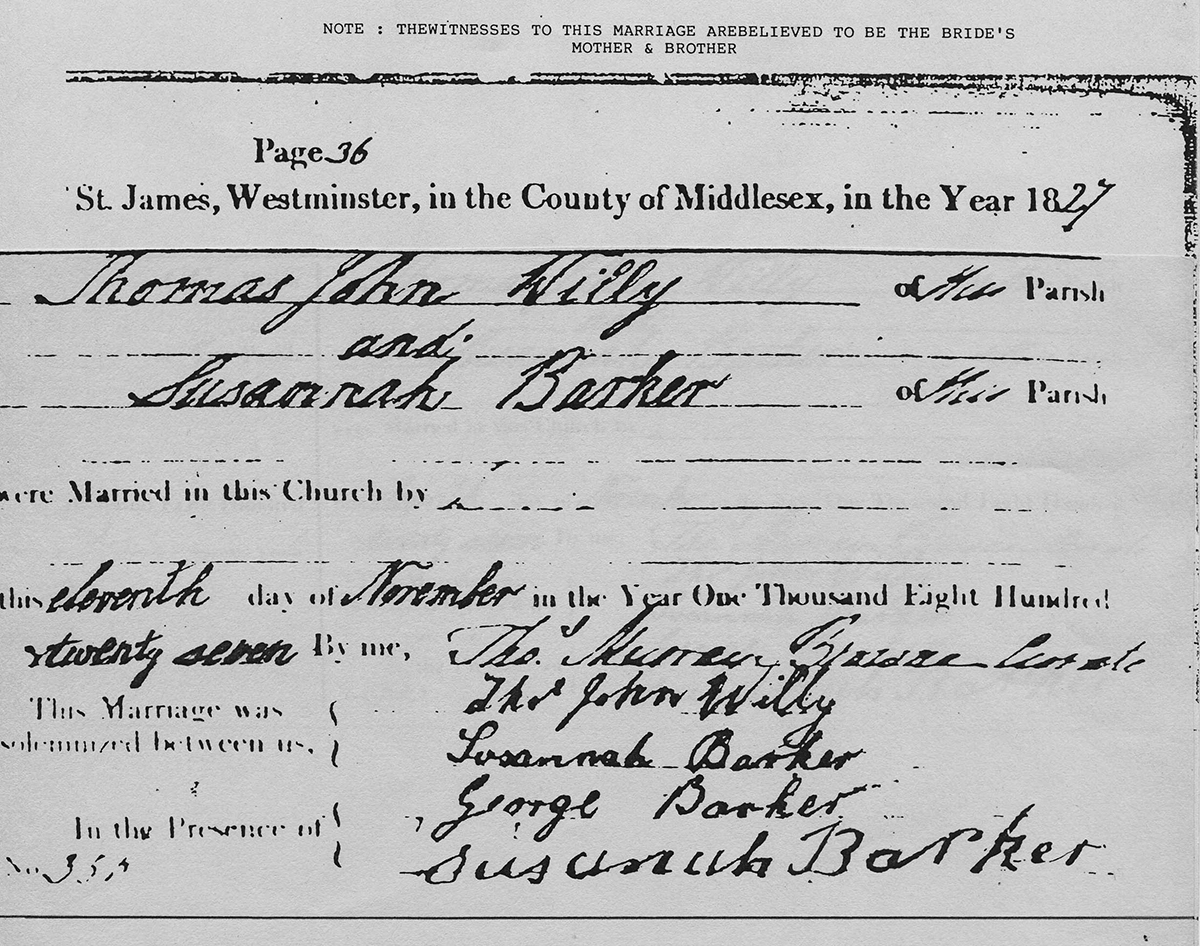 NOTE : THEWITNESSES TO THIS MARRIAGE AREBELIEVED TO BE THE BRIDE'S
MOTHER & BROTHER
Page 36
St. James, Westminster, in the County of Middlesex, in the Year 1827
Thomas John Willy of this Parish
and
Susannah Barker of this Parish
were Married in this Church by
this eleventh day of November in the Year One Thousand Eight Hundred
twenty seven By me, Thos. Murray Curate
This Marriage was Thos John Willy
solemnized between us, Susannah Barker
George Barker
In the Presence of susanah Barker
No.